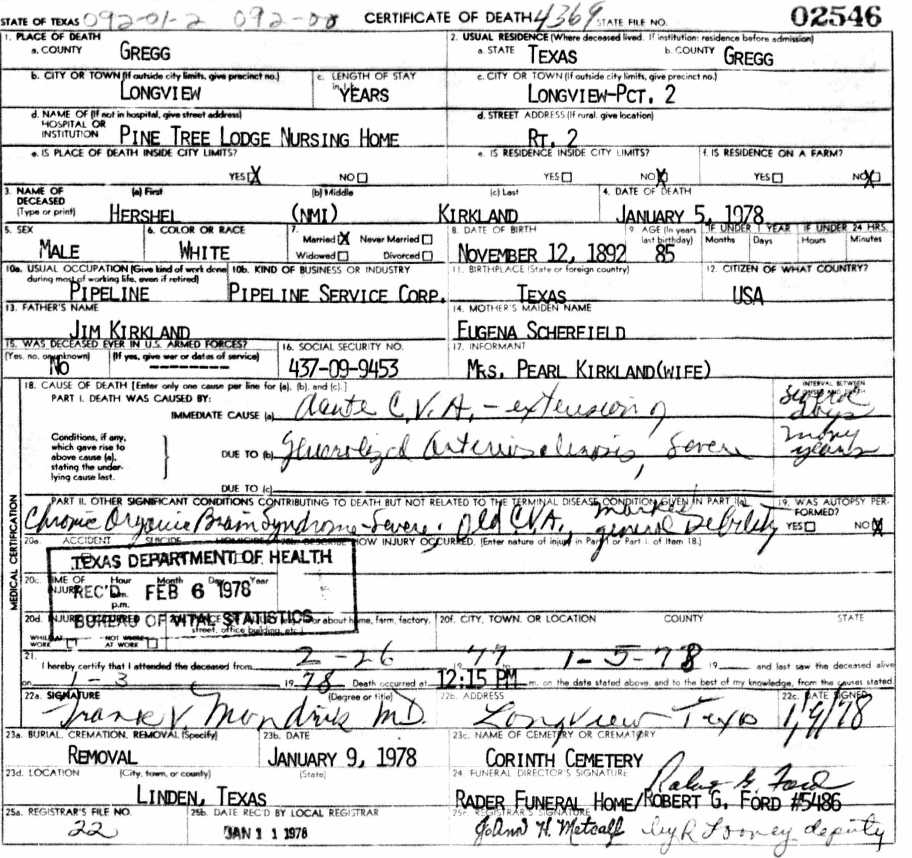 STATE OF TEXAS 092-01-2 092-00 CERTIFICATE OF DEATH 4369 STATE FILE NO. 02546
1. PLACE OF DEATH
a. COUNTY GREGG
2. USUAL RESIDENCE (Where deceased lived. If institution: residence before admission)
a. STATE TEXAS b. COUNTY GREGG
b. CITY OR TOWN (If outside city limits, give precinct no.) LONGVIEW
c. LENGTH OF STAY YEARS
c. CITY OR TOWN (If outside city limits, give precinct no.) LONGVIEW-PCT. 2
d. NAME OF (If not in hospital, give street address) HOSPITAL OR INSTITUTION PINE TREE LODGE NURSING HOME
d. STREET ADDRESS (If rural, give location) RT. 2
e. IS PLACE OF DEATH INSIDE CITY LIMITS? YES X NO
e. IS RESIDENCE INSIDE CITY LIMITS? YES NO X
f. IS RESIDENCE ON A FARM? YES NO X
3. NAME OF DECEASED (Type or print)
(a) First HERSHEL (b) Middle (NMI) (c) Last KIRKLAND
4. DATE OF DEATH JANUARY 5, 1978
5. SEX MALE
6. COLOR OR RACE WHITE
7. Married X Never Married
Widowed Divorced
8. DATE OF BIRTH NOVEMBER 12, 1892
9. AGE (In years last birthday) 85
IF UNDER 1 YEAR Months Days
IF UNDER 24 HRS. Hours Minutes
10a. USUAL OCCUPATION (Give kind of work done during most of working life, even if retired) PIPELINE
10b. KIND OF BUSINESS OR INDUSTRY PIPELINE SERVICE CORP.
11. BIRTHPLACE (State or foreign country) TEXAS
12. CITIZEN OF WHAT COUNTRY? USA
13. FATHER'S NAME JIM KIRKLAND
14. MOTHER'S MAIDEN NAME EUGENA SCHERFIELD
15. WAS DECEASED EVER IN U.S. ARMED FORCES?
(Yes, no, or unknown) NO (If yes, give war or dates of service) --------
16. SOCIAL SECURITY NO. 437-09-9453
17. INFORMANT MRS. PEARL KIRKLAND(WIFE)
MEDICAL CERTIFICATION
18. CAUSE OF DEATH [Enter only one cause per line for (a), (b), and (c).]
INTERVAL BETWEEN ONSET AND DEATH
PART I. DEATH WAS CAUSED BY:
IMMEDIATE CAUSE (a) Acute C.V.A. - extension of several days
Conditions, if any, which gave rise to above cause (a), stating the underlying cause last.
DUE TO (b) Arteriosclerosis, Severe many years
DUE TO (c)
PART II. OTHER SIGNIFICANT CONDITIONS CONTRIBUTING TO DEATH BUT NOT RELATED TO THE TERMINAL DISEASE CONDITION GIVEN IN PART I(a)
Chronic Organic Brain Syndrome - Severe. Old CVA, marked general Debility
19. WAS AUTOPSY PERFORMED? YES NO X
20a. ACCIDENT SUICIDE HOMICIDE 20b. DESCRIBE HOW INJURY OCCURRED. (Enter nature of injury in Part I or Part I. of Item 18.)
TEXAS DEPARTMENT OF HEALTH
REC'D FEB 6 1978
BUREAU OF VITAL STATISTICS
20c. TIME OF INJURY Hour Month Day Year
a.m.
p.m.
20d. INJURY OCCURRED
WHILE AT WORK NOT WHILE AT WORK
20e. PLACE OF INJURY (e.g., in or about home, farm, factory, street, office building, etc.)
20f. CITY, TOWN, OR LOCATION COUNTY STATE
21. I hereby certify that I attended the deceased from 2-26 1977 1-5-78 19 and last saw the deceased alive
on 1-3 1978 Death occurred at 12:15 PM m. on the date stated above, and to the best of my knowledge, from the causes stated.
22a. SIGNATURE (Degree or title) Frank V. Mondrik M.D.
22b. ADDRESS Longview Texas
22c. DATE SIGNED 1/9/78
23a. BURIAL, CREMATION, REMOVAL (Specify) REMOVAL
23b. DATE JANUARY 9, 1978
23c. NAME OF CEMETERY OR CREMATORY CORINTH CEMETERY
23d. LOCATION (City, town, or county) (State) LINDEN, TEXAS
24. FUNERAL DIRECTOR'S SIGNATURE Robert G. Ford
RADER FUNERAL HOME/ROBERT G. FORD #5486
25a. REGISTRAR'S FILE NO. 22
25b. DATE REC'D BY LOCAL REGISTRAR JAN 11 1978
25c. REGISTRAR'S SIGNATURE JoAnn H. Metcalf by R Looney deputy